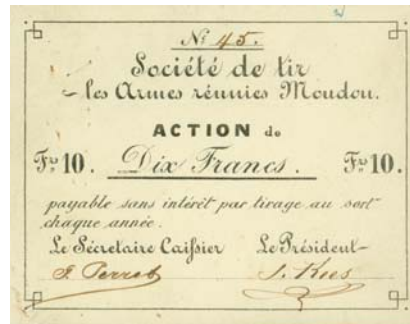 Nº 45.
Société de tir
les Armes réunies Moudon.
ACTION de
Fr. 10. Dix Francs. Fr. 10.
payable sans intérêt par tirage au sort
chaque année.
Le Sécretaire Caissier Le Président
Perret